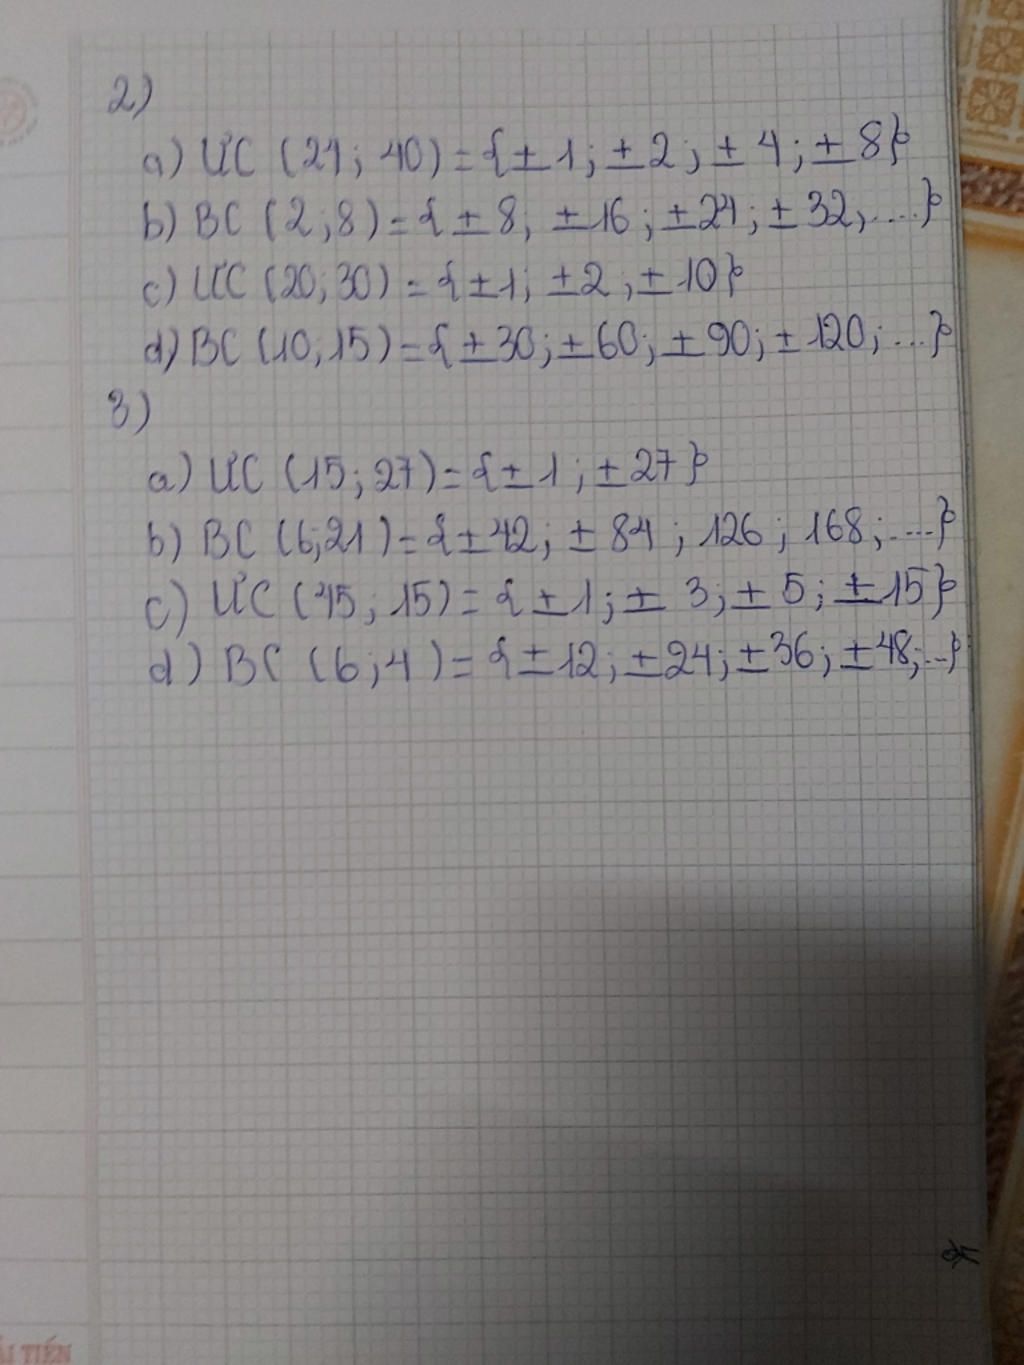 2)
a) ƯC (24; 40) = {±1; ±2; ±4; ±8}
b) BC (2;8) = {±8; ±16; ±24; ±32, ....}
c) ƯC (20; 30) = {±1; ±2; ±10}
d) BC (10; 15) = {±30; ±60; ±90; ±120; ...}
3)
a) ƯC (15; 27) = {±1; ±27}
b) BC (6;21) = {±42; ±84; 126; 168; ....}
c) ƯC (45; 15) = {±1; ±3; ±5; ±15}
d) BC (6; 4) = {±12; ±24; ±36; ±48; ...}
TIẾN